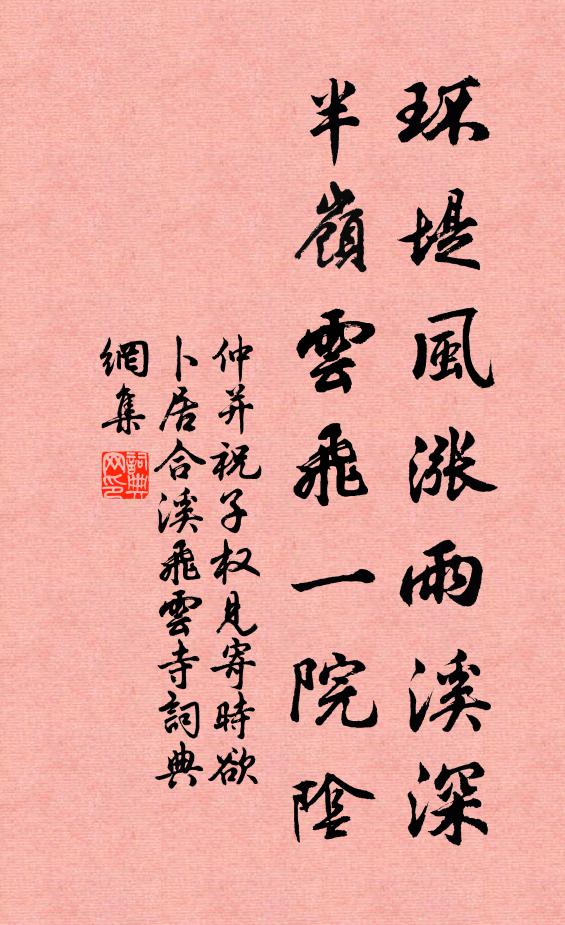 环堤風漲雨溪深
半嶺雲飛一院陰
仲并祝子权見寄時欲
卜居合溪飛雲寺詞典
網集
詞典
网印